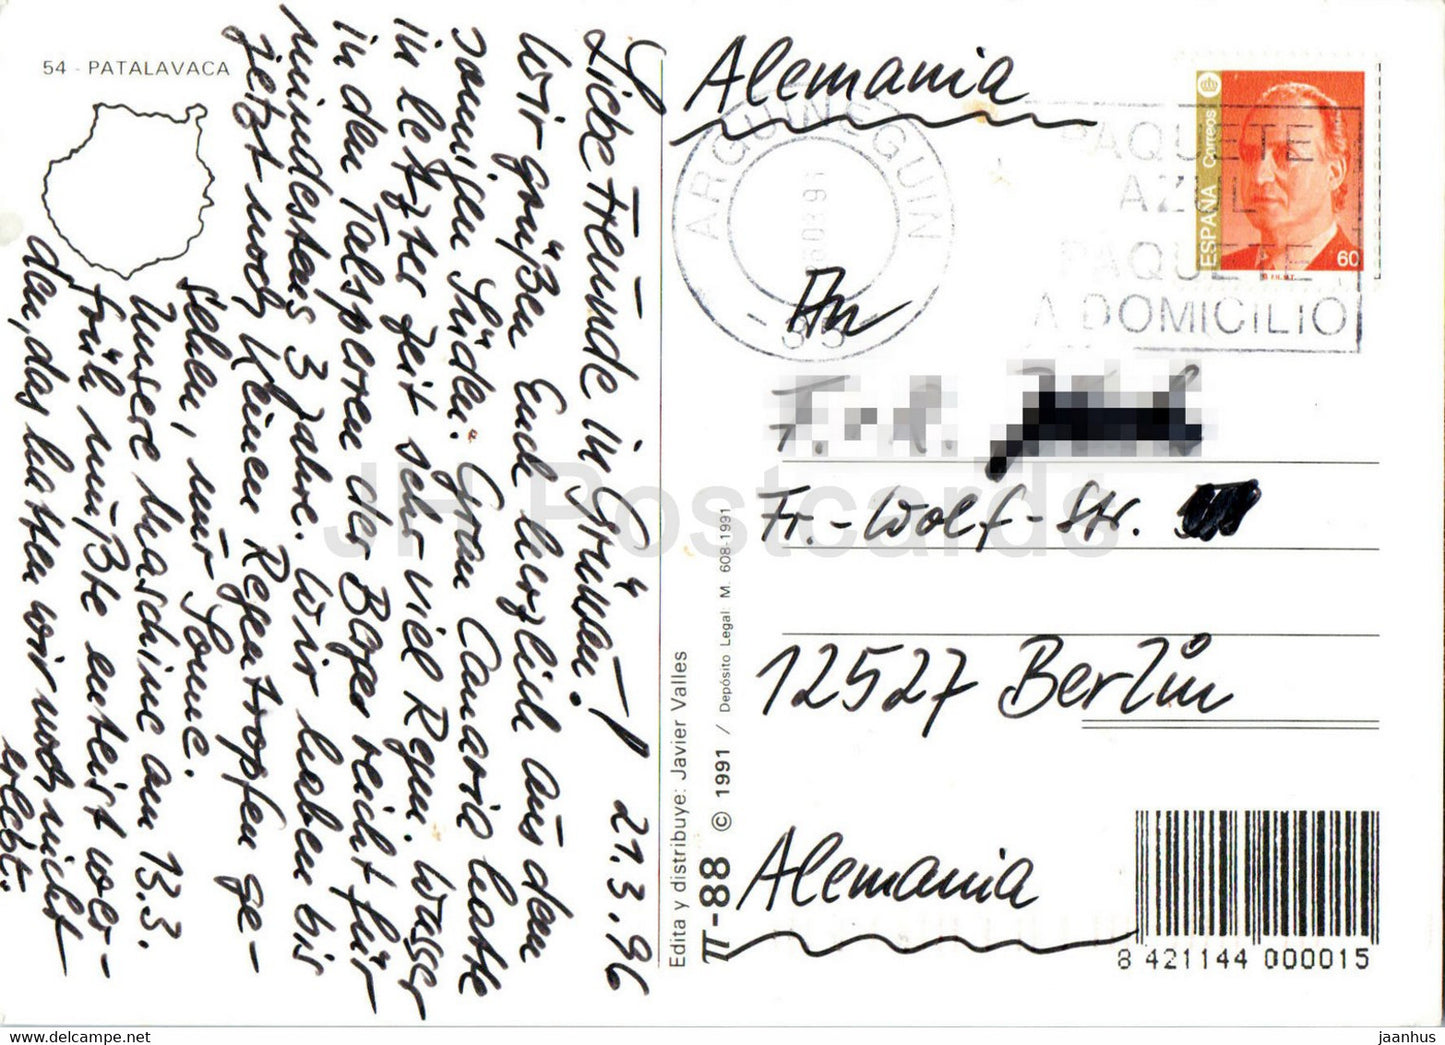 54 - PATALAVACA
Liebe Freunde in Grünau! 21.3.96
Wir grüßen Euch herzlich aus dem
sonnigen Süden. Gran Canaria hatte
in letzter Zeit sehr viel Regen. Wasser
in den Talsperren der Berge reicht für
mindestens 3 Jahre. Wir haben bis
jetzt noch keinen Regentropfen ge-
sehen, nur Sonne.
Unsere Maschine am 13.3.
früh mußte enteist wer-
den, das hatten wir noch nicht
erlebt.
Edita y distribuye: Javier Valles
π-88 © 1991 / Depósito Legal: M. 608-1991
Alemania
ARGUINEGUIN
- 35 -
PAQUETE
AZUL
PAQUETE
A DOMICILIO
ESPAÑA Correos
60
An
F. + R.
Fr.-Wolf-Str.
12527 Berlin
Alemania
8 421144 000015
JH Postcards
jaanhus